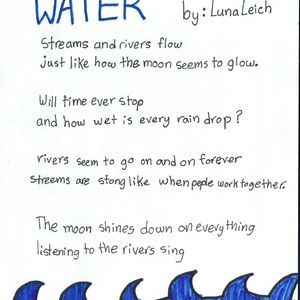 WATER
by: Luna Leich
Streams and rivers flow
just like how the moon seems to glow.
Will time ever stop
and how wet is every rain drop?
rivers seem to go on and on forever
streems are stong like when peple work together.
The moon shines down on everything
listening to the rivers sing